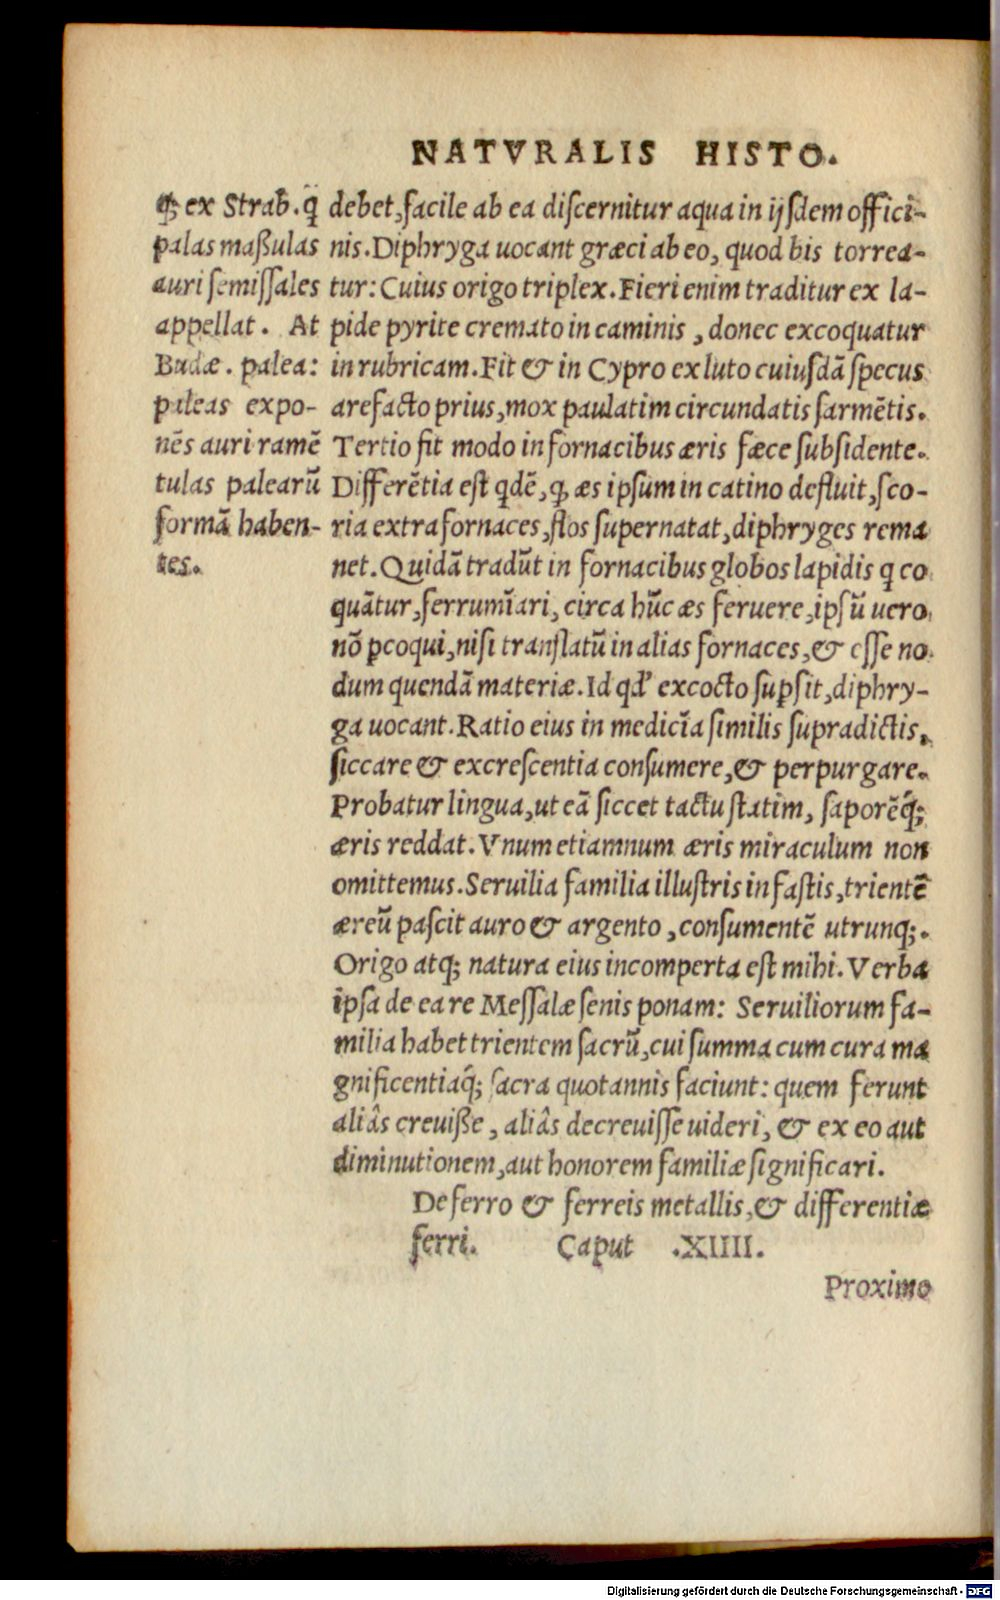 NATVRALIS HISTO.
q; ex Strab. q̈
palas maßulas
auri semissales
appellat. At
Budæ. palea:
paleas expo-
nẽs auri ramẽ
tulas palearũ
formã haben-
tes.
debet, facile ab ea discernitur aqua in ijsdem offici-
nis. Diphryga uocant græci ab eo, quod bis torrea-
tur: Cuius origo triplex. Fieri enim traditur ex la-
pide pyrite cremato in caminis, donec excoquatur
in rubricam. Fit & in Cypro ex luto cuiusdã specus
arefacto prius, mox paulatim circundatis sarmẽtis.
Tertio fit modo in fornacibus æris fæce subsidente.
Differẽtia est qdẽ, ꝙ æs ipsum in catino defluit, sco-
ria extra fornaces, flos supernatat, diphryges rema
net. Quidã tradũt in fornacibus globos lapidis q co
quãtur, ferrumĩari, circa hũc æs feruere, ipsũ uero
nõ ꝑcoqui, nisi translatũ in alias fornaces, & esse no
dum quendã materiæ. Id qď excocto suꝑsit, diphry-
ga uocant. Ratio eius in medicĩa similis supradictis,
siccare & excrescentia consumere, & perpurgare.
Probatur lingua, ut eã siccet tactu statim, saporẽq́;
æris reddat. Vnum etiamnum æris miraculum non
omittemus. Seruilia familia illustris in fastis, trientẽ
æreũ pascit auro & argento, consumentẽ utrunq;.
Origo atq; natura eius incomperta est mihi. Verba
ipsa de ea re Messalæ senis ponam: Seruiliorum fa-
milia habet trientem sacrũ, cui summa cum cura ma
gnificentiaq́; sacra quotannis faciunt: quem ferunt
aliâs creuiße, aliâs decreuisse uideri, & ex eo aut
diminutionem, aut honorem familiæ significari.
De ferro & ferreis metallis, & differentiæ
ferri. Caput .XIIII.
Proximo
Digitalisierung gefördert durch die Deutsche Forschungsgemeinschaft - DFG